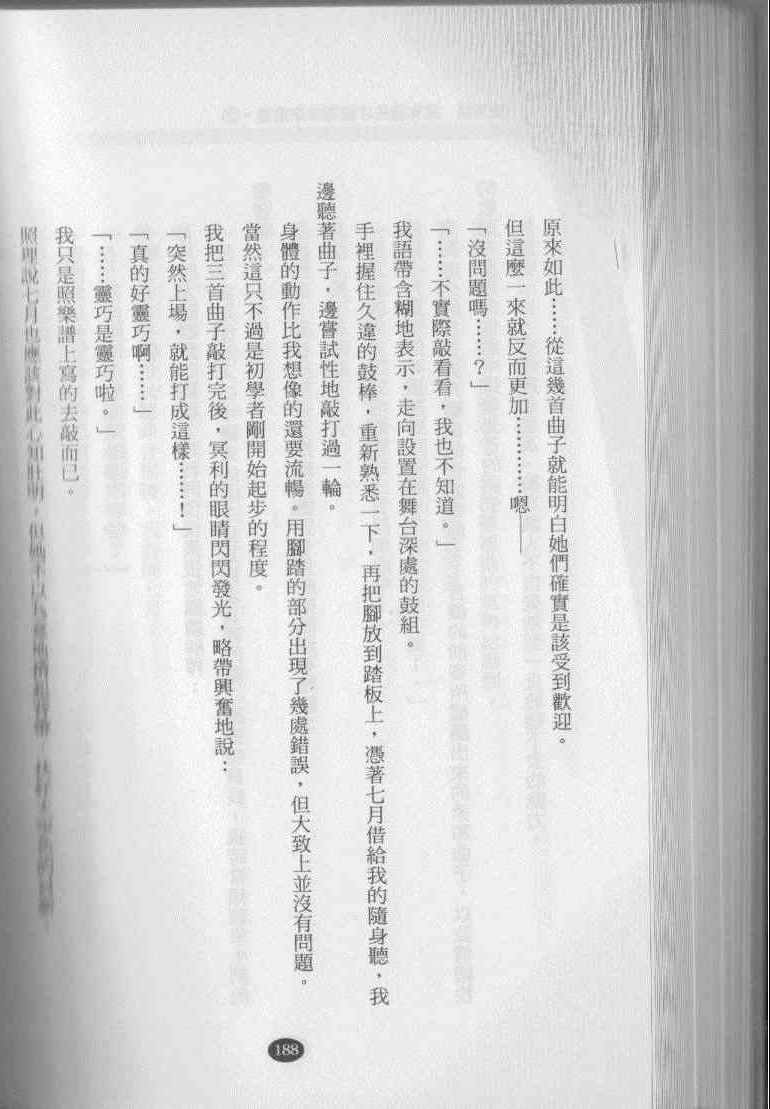 原來如此……從這幾首曲子就能明白她們確實是該受到歡迎。
但這麼一來就反而更加…………嗯——
「沒問題嗎……？」
「……不實際敲看看，我也不知道。」
我語帶含糊地表示，走向設置在舞台深處的鼓組。
手裡握住久違的鼓棒，重新熟悉一下，再把腳放到踏板上，憑著七月借給我的隨身聽，我
邊聽著曲子，邊嘗試性地敲打過一輪。
身體的動作比我想像的還要流暢。用腳踏的部分出現了幾處錯誤，但大致上並沒有問題。
當然這只不過是初學者剛開始起步的程度。
我把三首曲子敲打完後，冥利的眼睛閃閃發光，略帶興奮地說：
「突然上場，就能打成這樣……！」
「真的好靈巧啊……」
「……靈巧是靈巧啦。」
我只是照樂譜上寫的去敲而已。
照理說七月也應該對此心知肚明，但她
188